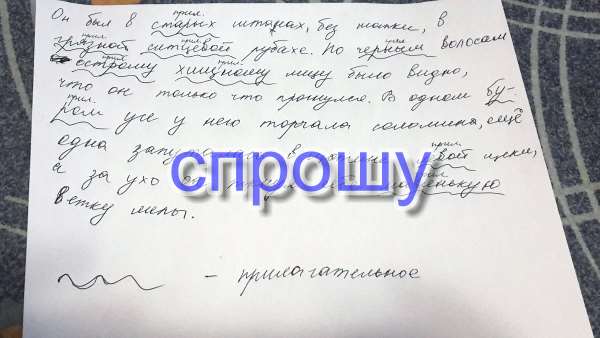 прил.
Он был в старых штанах, без шапки, в
прил. прил. прил.
грязной ситцевой рубахе. По черным волосам
прил. прил.
острому хищному лицу было видно,
что он только что проснулся. В одном бу-
прил.
ром усе у него торчала соломина, ещё
прил.
одна в вой щеки,
прил.
а за ухо он нькую
ветку липы.
спрошу
– прилагательное